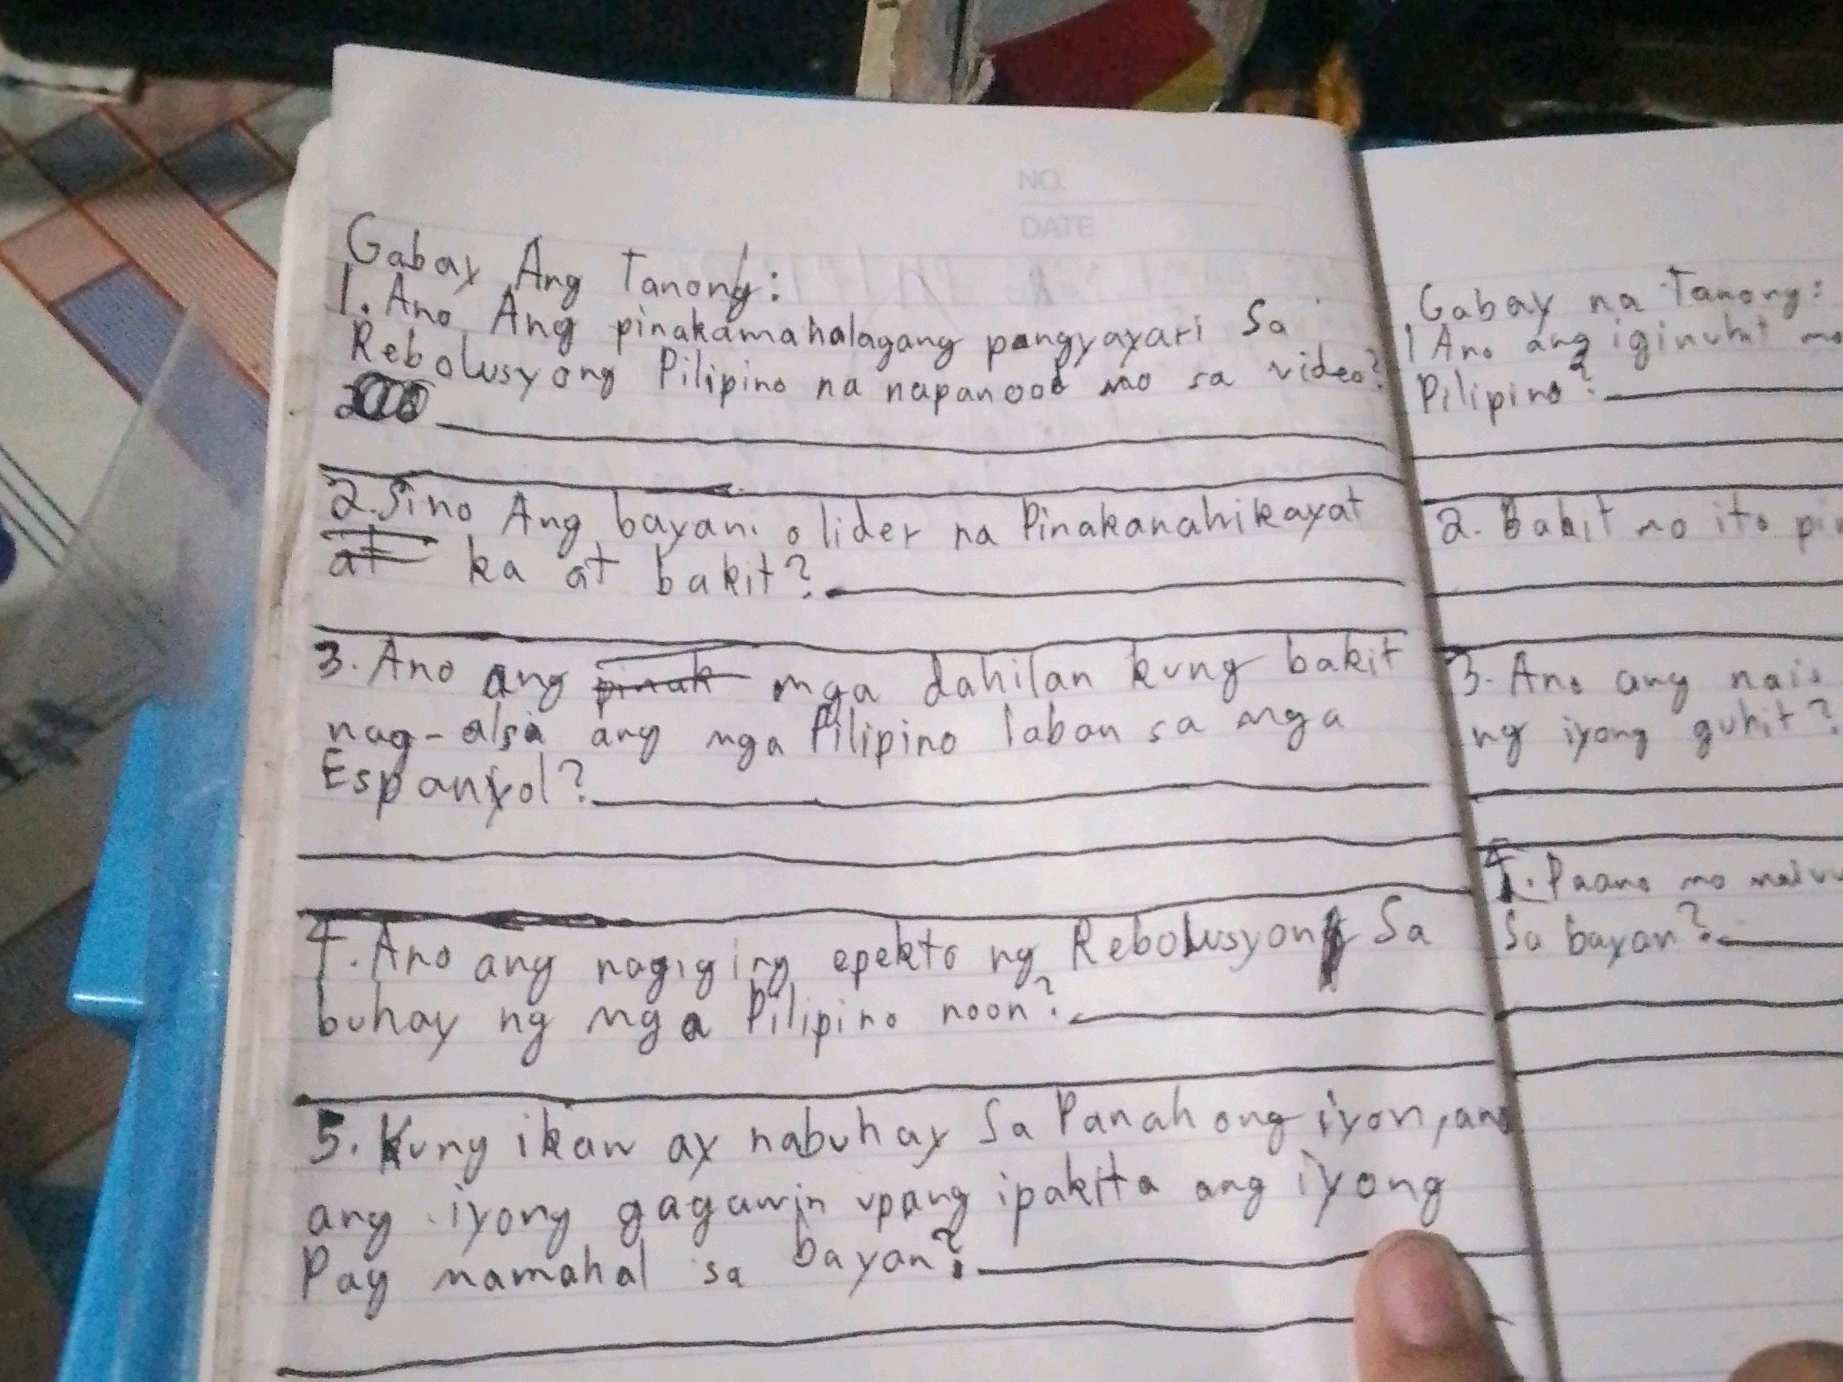 NO.
DATE
Gabay Ang Tanong:
1. Ano Ang pinakamahalagang pangyayari Sa
Rebolusyong Pilipino na napanood mo sa video?
2. Sino Ang bayani o lider na Pinakanahikayat
at ka at bakit?
3. Ano ang pinak mga dahilan kung bakit
nag-alsa ang mga Pilipino laban sa mga
Espanyol?
4. Ano ang nagiging epekto ng Rebolusyon Sa
buhay ng mga Pilipino noon?
5. Kung ikaw ay nabuhay Sa Panahong iyon, ano
ang iyong gagawin upang ipakita ang iyong
Pag mamahal sa bayan?
Gabay na Tanong:
1 Ano ang iginuhit mo
Pilipino?
2. Bakit mo ito
3. Ano ang nais
ng iyong guhit?
4. Paano mo
Sa bayan?